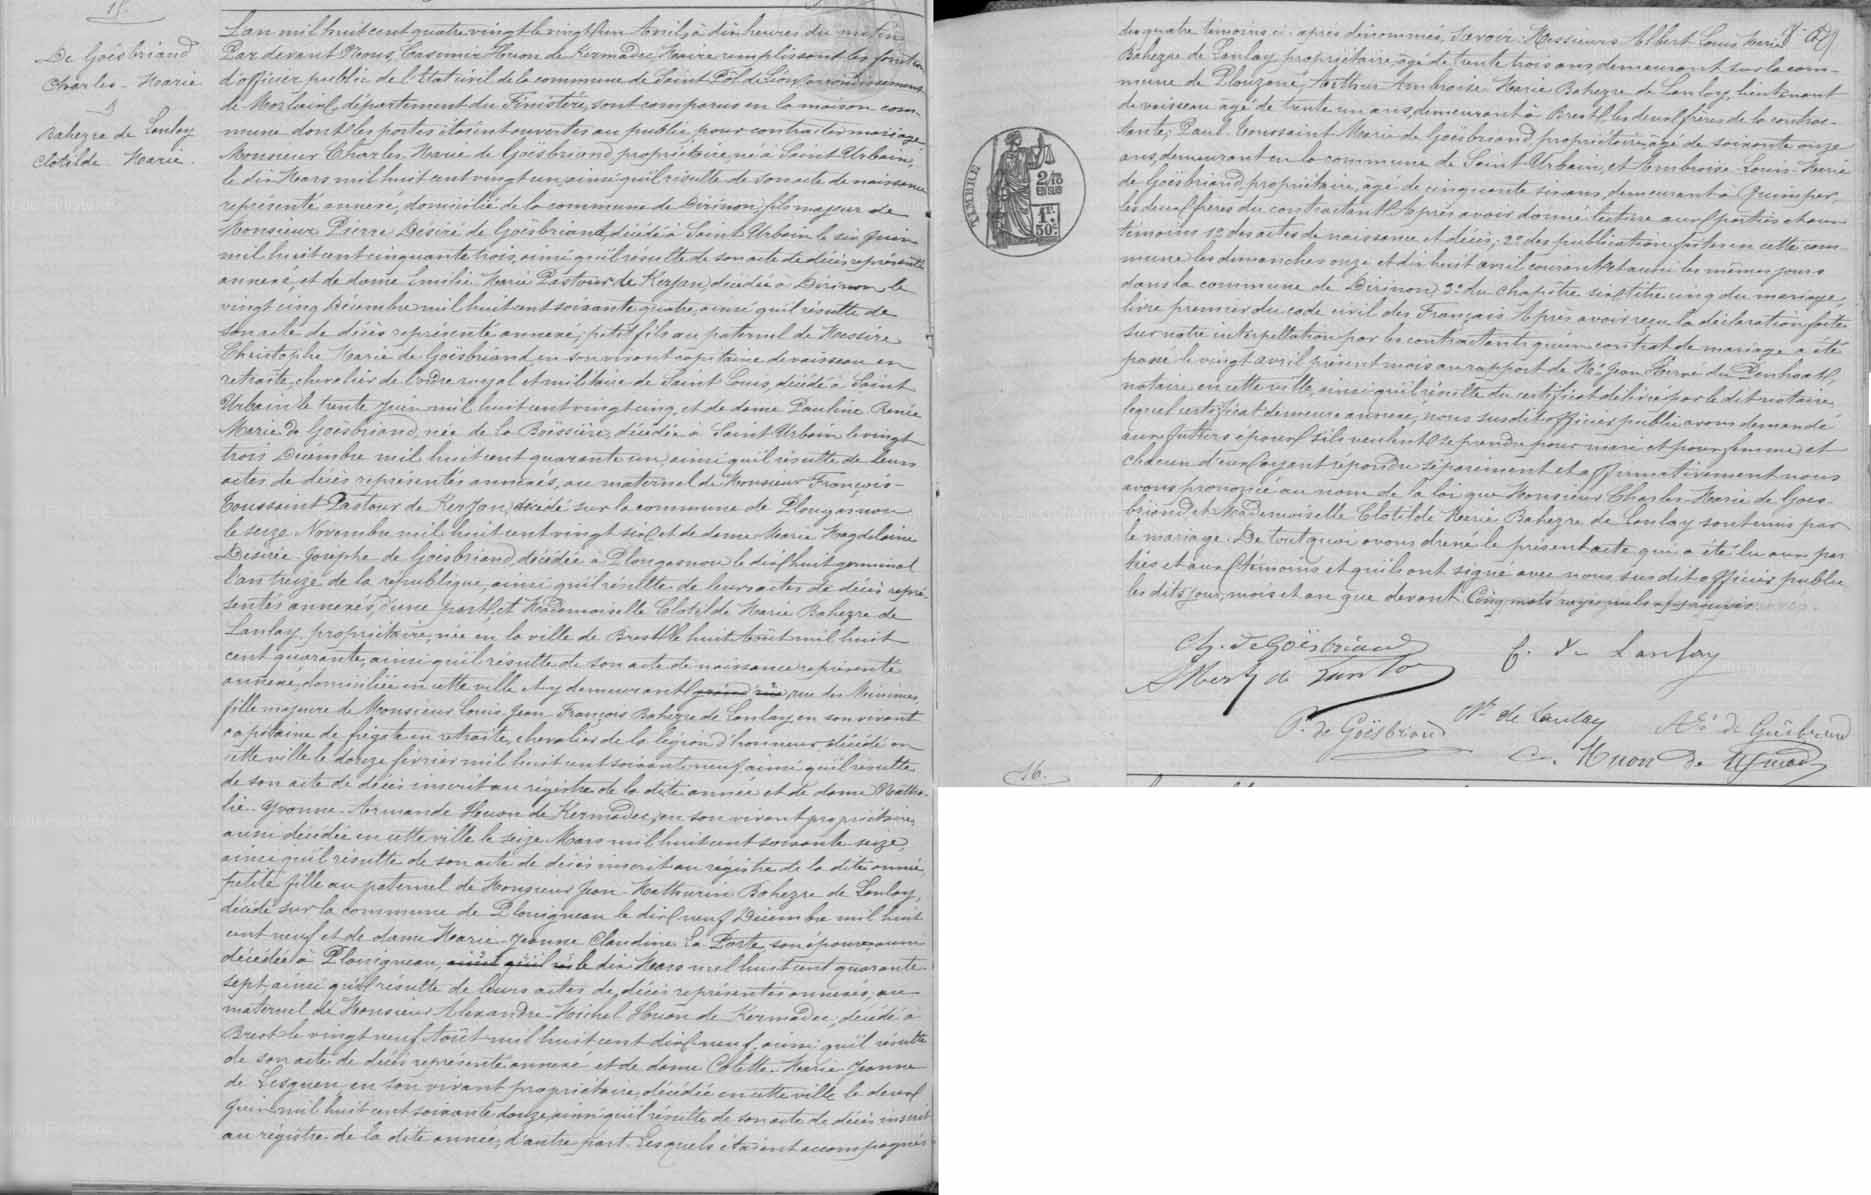 15.
De Goësbriand
Charles-Marie
&
Bahezre de Lanlay
Clotilde Marie.
L'an mil huit cent quatre vingt le vingt un Avril, à dix heures du matin
Par devant Nous, Casimir Huon de Kermadec Maire remplissant les fonctions
d'officier public de l'Etat civil de la commune de Saint Pol de Léon, arrondissement
de Morlaix, département du Finistère, sont comparus en la maison com-
mune dont les portes étaient ouvertes au public pour contracter mariage
Monsieur Charles Marie de Goësbriand, propriétaire, né à Saint Urbain,
le dix Mars mil huit cent vingt un, ainsi qu'il résulte de son acte de naissance
représenté annexé, domicilié de la commune de Dirinon, fils majeur de
Monsieur Pierre Désiré de Goësbriand, décédé à Saint Urbain le six Juin
mil huit cent cinquante trois, ainsi qu'il résulte de son acte de décès représenté
annexé, et de dame Emilie Marie Pastour de Kerjan, décédée à Dirinon, le
vingt cinq Décembre mil huit cent soixante quatre, ainsi qu'il résulte de
son acte de décès représenté annexé; petit fils au paternel de Messire
Christophe Marie de Goësbriand, en son vivant capitaine de vaisseau en
retraite, chevalier de l'ordre royal et militaire de Saint Louis, décédé à Saint
Urbain le trente Juin mil huit cent vingt cinq, et de dame Pauline Renée
Marie de Goësbriand, née de la Boëssière, décédée à Saint Urbain le vingt
trois Décembre mil huit cent quarante un, ainsi qu'il résulte de leurs
actes de décès représentés annexés, au maternel de Monsieur François-
Toussaint Pastour de Kerjan, décédé sur la commune de Plougasnou
le seize Novembre mil huit cent vingt six et de dame Marie Magdeleine
Désirée-Josèphe de Goësbriand, décédée à Plougasnou le dix huit germinal
l'an treize de la république, ainsi qu'il résulte de leurs actes de décès repré-
sentés annexés, d'une part, et Mademoiselle Clotilde Marie Bahezre de
Lanlay, propriétaire, née en la ville de Brest le huit Août mil huit
cent quarante, ainsi qu'il résulte de son acte de naissance représenté
annexé, domiciliée en cette ville et y demeurant grand rue, rue des Minimes,
fille majeure de Monsieur Louis Jean François Bahezre de Lanlay, en son vivant
capitaine de frégate en retraite, chevalier de la légion d'honneur décédé en
cette ville le douze février mil huit cent soixante neuf ainsi qu'il résulte
de son acte de décès inscrit au régistre de la dite année et de dame Natha-
lie-Yvonne-Armande Huon de Kermadec, en son vivant propriétaire,
aussi décédée en cette ville le seize Mars mil huit cent soixante seize,
ainsi qu'il résulte de son acte de décès inscrit au régistre de la dite année,
petite fille au paternel de Monsieur Jean-Mathurin Bahezre de Lanlay,
décédé sur la commune de Plouigneau le dix neuf Décembre mil huit
cent neuf et de dame Marie-Jeanne Claudine La Porte, son épouse, aussi
décédée à Plouigneau, ainsi qu'il rés le dix Mars mil huit cent quarante
sept, ainsi qu'il résulte de leurs actes de décès représentés annexés, au
maternel de Monsieur Alexandre-Michel Huon de Kermadec, décédé à
Brest le vingt neuf Août mil huit cent dix neuf, ainsi qu'il résulte
de son acte de décès représenté annexé et de dame Colette-Marie Jeanne
de Lesguen, en son vivant propriétaire, décédée en cette ville le deux
Juin mil huit cent soixante douze, ainsi qu'il résulte de son acte de décès inscrit
au régistre de la dite année, d'autre part. Lesquels étaient accompagnés
des quatre témoins ci-après dénommés, Savoir: Messieurs Albert Louis Marie
Bahezre de Lanlay, propriétaire, âgé de trente trois ans, demeurant sur la com-
mune de Plouzané, Arthur Ambroise Marie Bahezre de Lanlay, lieutenant
de vaisseau âgé de trente un ans, demeurant à Brest, les deux frères de la contrac-
tante, Paul-Toussaint-Marie de Goësbriand, propriétaire, âgé de soixante onze
ans, demeurant en la commune de Saint Urbain, et Ambroise-Louis-Marie
de Goësbriand, propriétaire, âgé de cinquante six ans, demeurant à Quimper,
les deux frères du contractant. Après avoir donné lecture aux parties et aux
témoins 1º des actes de naissance et décès; 2º des publications faites en cette com-
mune les dimanches onze et dix huit avril courant et aussi les mêmes jours
dans la commune de Dirinon, 3º du chapitre six titre cinq du mariage,
livre premier du code civil des Français. Après avoir reçu la déclaration faite
sur notre interpellation par les contractants, qu'un contrat de mariage a été
passé le vingt avril présent mois au rapport de Me Jean Hervé du Penhoat,
notaire en cette ville, ainsi qu'il résulte du certificat délivré par le dit notaire
lequel certificat demeure annexé, nous susdit officier public avons demandé
aux futurs époux s'ils veulent se prendre pour mari et pour femme et
chacun d'eux ayant répondu séparément et affirmativement nous
avons prononcé au nom de la loi que Monsieur Charles-Marie de Goës-
briand et Mademoiselle Clotilde Marie Bahezre de Lanlay sont unis par
le mariage. De tout quoi avons dressé le présent acte qui a été lu aux par-
ties et aux témoins et qu'ils ont signé avec nous susdit officier public
les dits jour, mois et an que devant. Cinq mots rayés nuls approuvés.
TIMBRE
2/10
EN SUS
1F.
50C.
Ch. de Goësbriand
C. de Lanlay
Albert de Lanlay
P. de Goësbriand
Ar. de Lanlay
Ad. de Goësbriand
C. Huon de Kermadec
16.